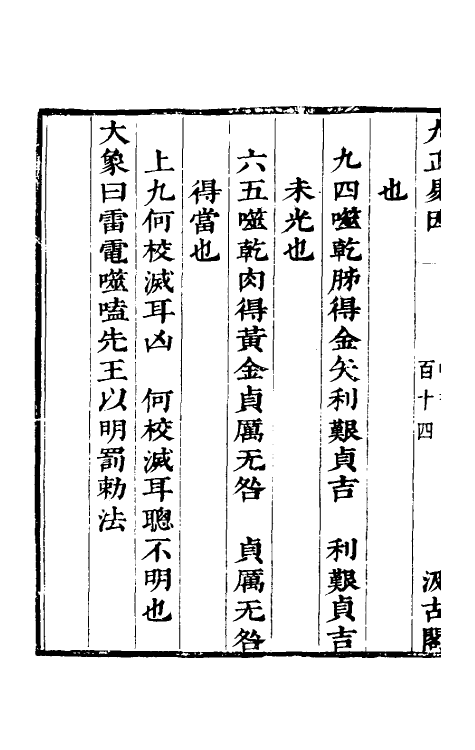 九正易因
百十四
汲古閣
也
九四噬乾胏得金矢利艱貞吉　利艱貞吉
未光也
六五噬乾肉得黃金貞厲无咎　貞厲无咎
得當也
上九何校滅耳凶　何校滅耳聰不明也
大象曰雷電噬嗑先王以明罰勅法